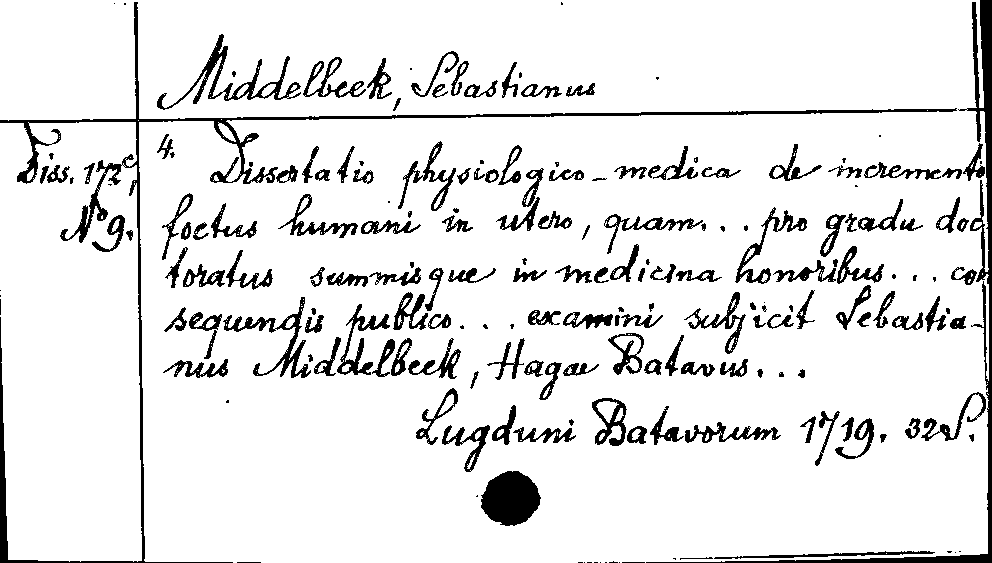 Middelbeek, Sebastianus
Diss. 172c,
No 9.
4.
Dissertatio physiologico-medica de incremento
foetus humani in utero, quam... pro gradu doc
toratus summisque in medicina honoribus... con
sequendis publico... examini subjicit Sebastia-
nus Middelbeek, Hagae Batavus...
Lugduni Batavorum 1719. 32 S.